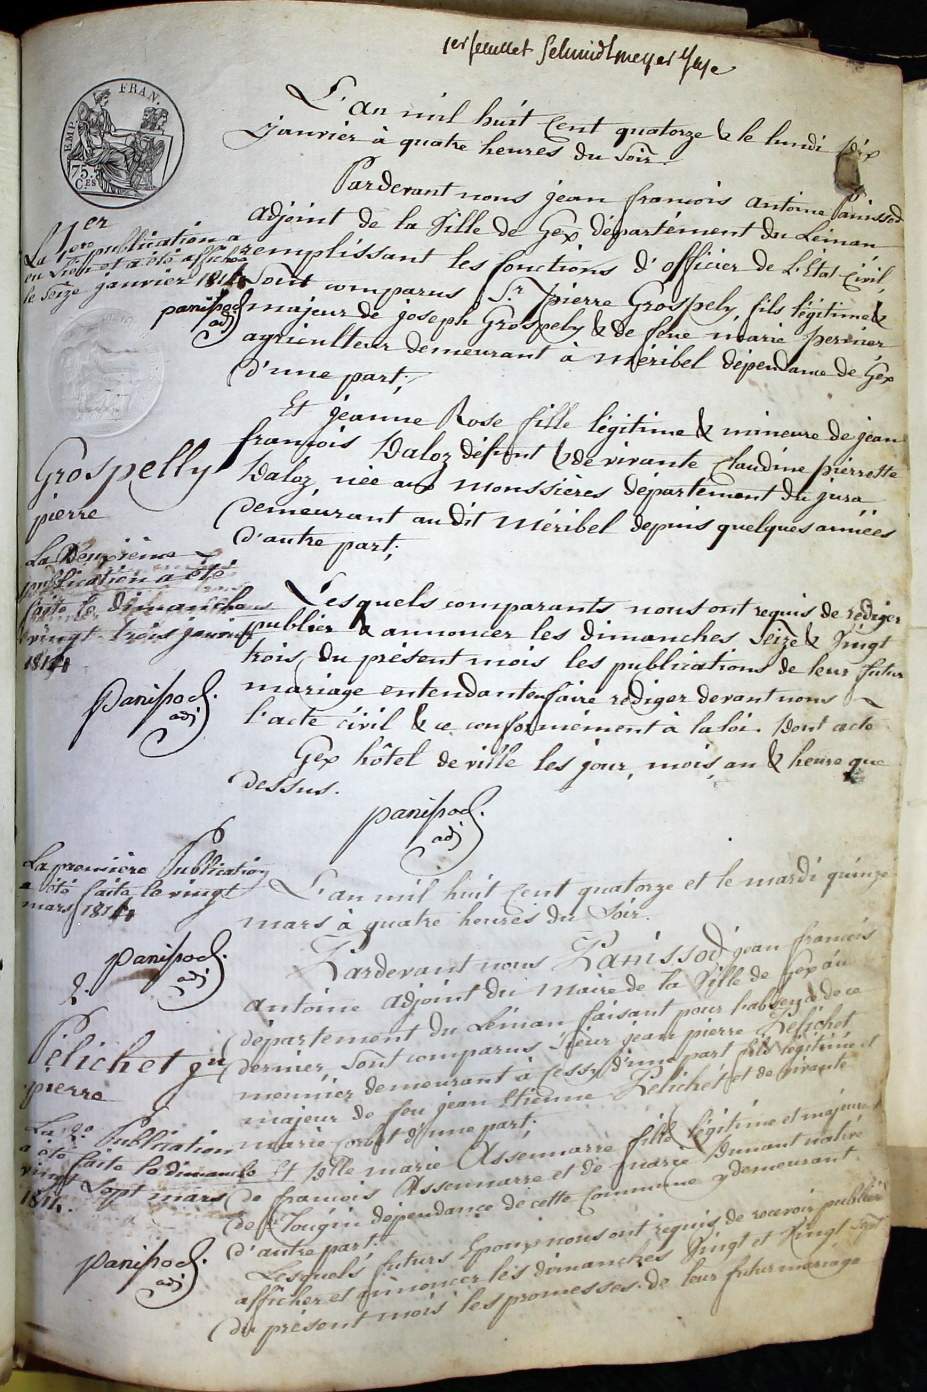 1er feuillet Schmidtmeyer Juge
EMP. FRAN.
75.
CES
L'an mil huit Cent quatorze & le lundi dix
janvier à quatre heures du Soir.
Pardevant nous jean francois antoine Panissod
adjoint de la Ville de Gex département du Léman
remplissant les fonctions d'officier de L'Etat Civil,
Sont comparus S.r pierre Grospely, fils légitime &
majeur de joseph Grospely & de feue marie perrier
agriculteur demeurant à méribel dépendance de Gex
d'une part,
Et jeanne Rose fille légitime & mineure de jean
françois Daloz défunt & de vivante Claudine pierrette
Daloz, née aux Moussières département du jura
Demeurant audit Méribel depuis quelques années
d'autre part,
Lesquels comparants nous ont requis de rédiger
publier & annoncer les dimanches Seize & Vingt
trois du présent mois les publications de leur futur
mariage entendant en faire rédiger devant nous
l'acte civil & ce conformément à la loi. Dont acte
Gex hôtel de ville les jour, mois, an & heure que
dessus.
panissod.
adj
1er
La 1ere publication a
eu lieu et a été affichée
le Seize janvier 1814
panissod
adj
Grospelly
pierre
La Deuxième
publication a été
faite le dimanche
vingt trois janvier
1814
panissod.
adj
L'an mil huit Cent quatorze et le mardi quinze
mars à quatre heures du Soir.
Pardevant nous Panissod jean francois
antoine adjoint du Maire de la Ville de Gex au
département du Léman faisant pour l'absence de ce
dernier, Sont comparus Sieur jean pierre Pelichet
meunier demeurant à Cessy d'une part fils légitime et
majeur de feu jean Etienne Pelichet et de vivante
marie d'une part.
Et Dlle marie Assenmarre fille légitime et majeure
de francois Assenmarre et de marie Dunant native
de Tougin dépendance de cette Commune y demeurant
d'autre part.
Lesquels futurs Epoux nous ont requis de recevoir publier
afficher et annoncer les dimanches Vingt et Vingt Sept
du présent mois les promesses de leur futur mariage
La première Publication
a été faite le vingt
mars 1814
panissod.
adj
2.
Pélichet jn
pierre
La 2e Publication
a été faite le dimanche
vingt Sept mars
1814.
panissod.
adj